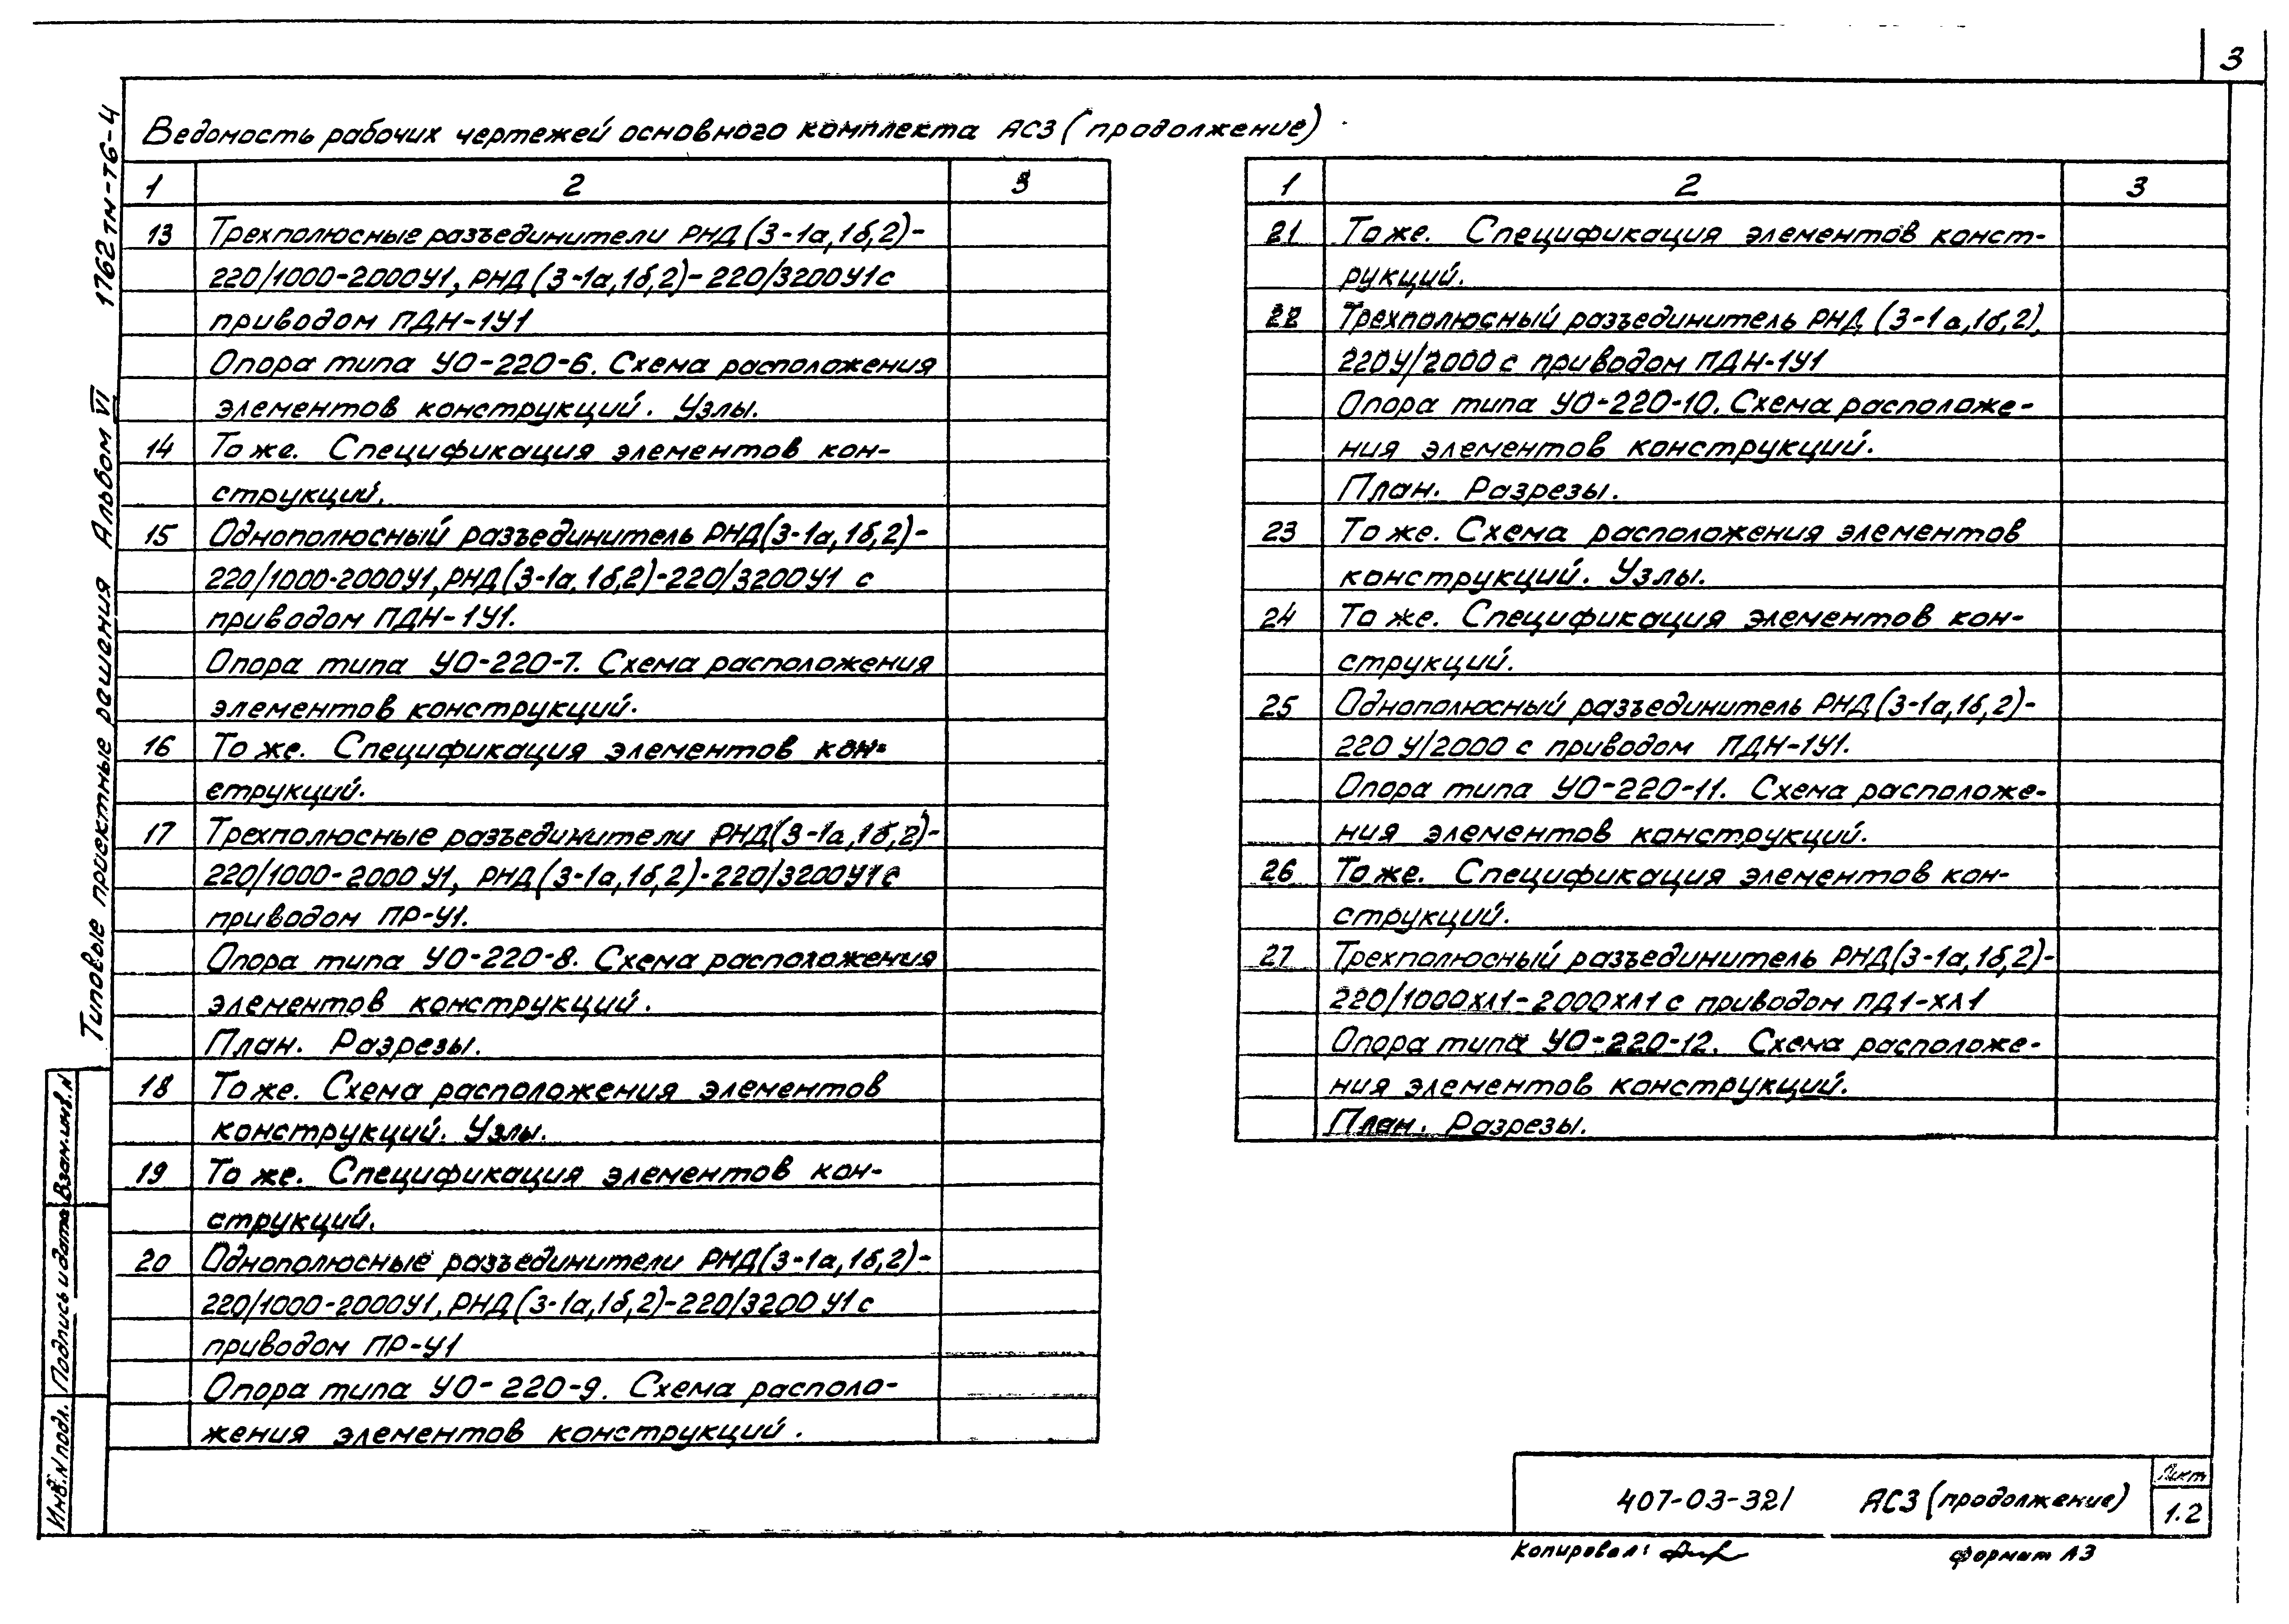 3
Ведомость рабочих чертежей основного комплекта АС3 (продолжение)
1 2 3
13 Трехполюсные разъединители РНД(3-1а,1б,2)-
220/1000-2000У1, РНД(3-1а,1б,2)-220/3200У1 с
приводом ПДН-1У1
Опора типа УО-220-6. Схема расположения
элементов конструкций. Узлы.
14 То же. Спецификация элементов кон-
струкций.
15 Однополюсный разъединитель РНД(3-1а,1б,2)-
220/1000-2000У1, РНД(3-1а,1б,2)-220/3200У1 с
приводом ПДН-1У1.
Опора типа УО-220-7. Схема расположения
элементов конструкций.
16 То же. Спецификация элементов кон-
струкций.
17 Трехполюсные разъединители РНД(3-1а,1б,2)-
220/1000-2000 У1, РНД(3-1а,1б,2)-220/3200У1 с
приводом ПР-У1.
Опора типа УО-220-8. Схема расположения
элементов конструкций.
План. Разрезы.
18 То же. Схема расположения элементов
конструкций. Узлы.
19 То же. Спецификация элементов кон-
струкций.
20 Однополюсные разъединители РНД(3-1а,1б,2)-
220/1000-2000У1, РНД(3-1а,1б,2)-220/3200 У1 с
приводом ПР-У1
Опора типа УО-220-9. Схема располо-
жения элементов конструкций.
1 2 3
21 То же. Спецификация элементов конст-
рукций.
22 Трехполюсный разъединитель РНД (3-1а,1б,2),
220У/2000 с приводом ПДН-1У1
Опора типа УО-220-10. Схема расположе-
ния элементов конструкций.
План. Разрезы.
23 То же. Схема расположения элементов
конструкций. Узлы.
24 То же. Спецификация элементов кон-
струкций.
25 Однополюсный разъединитель РНД(3-1а,1б,2)-
220 У/2000 с приводом ПДН-1У1.
Опора типа УО-220-11. Схема расположе-
ния элементов конструкций.
26 То же. Спецификация элементов кон-
струкций.
27 Трехполюсный разъединитель РНД(3-1а,1б,2)-
220/1000ХЛ1-2000ХЛ1 с приводом ПД1-ХЛ1
Опора типа УО-220-12. Схема расположе-
ния элементов конструкций.
План. Разрезы.
Типовые проектные решения Альбом VI 1762тм-т6-4
Инв.N подл. Подпись и дата Взам.инв.N
407-03-321 АС3 (продолжение)
Лист
1.2
Копировал: формат А3